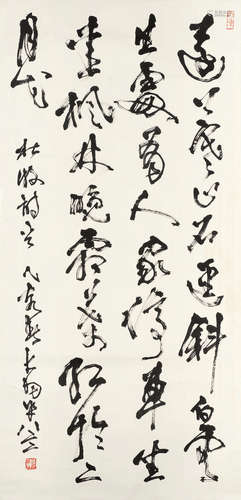 遠上寒山石逕斜白雲
生處有人家停車坐
愛楓林晚霜葉紅於二
月花
杜牧詩